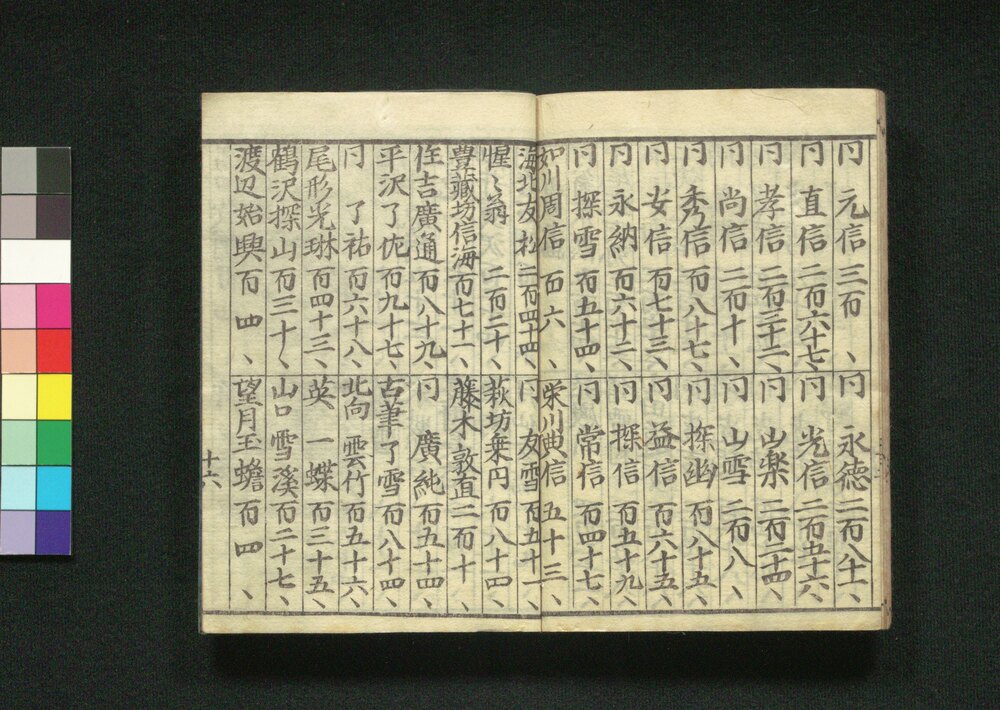 同 元信 三百 、
同 永徳 二百八十一、
同 直信 二百六十七、
同 光信 二百五十六、
同 孝信 二百三十二、
同 山楽 二百二十四、
同 尚信 二百十、
同 山雪 二百八、
同 秀信 百八十七、
同 探幽 百八十五、
同 安信 百七十三、
同 益信 百六十五、
同 永納 百六十二、
同 探信 百五十九、
同 探雪 百五十四、
同 常信 百四十七、
如川周信 百六、
栄川典信 五十三、
海北友松 二百四十四、
同 友雪 百五十一、
惺々翁 二百二十、
萩坊乗円 百八十四、
豊蔵坊信海 百七十一、
藤木敦直 二百十、
住吉廣通 百八十九、
同 廣純 百五十四、
平沢了佐 百九十七、
古筆了雪 百八十四、
同 了祐 百六十八、
北向雲竹 百五十六、
尾形光琳 百四十三、
英一蝶 百三十五、
鶴沢探山 百三十、
山口雪溪 百二十七、
渡辺始興 百四、
望月玉蟾 百四、
十六